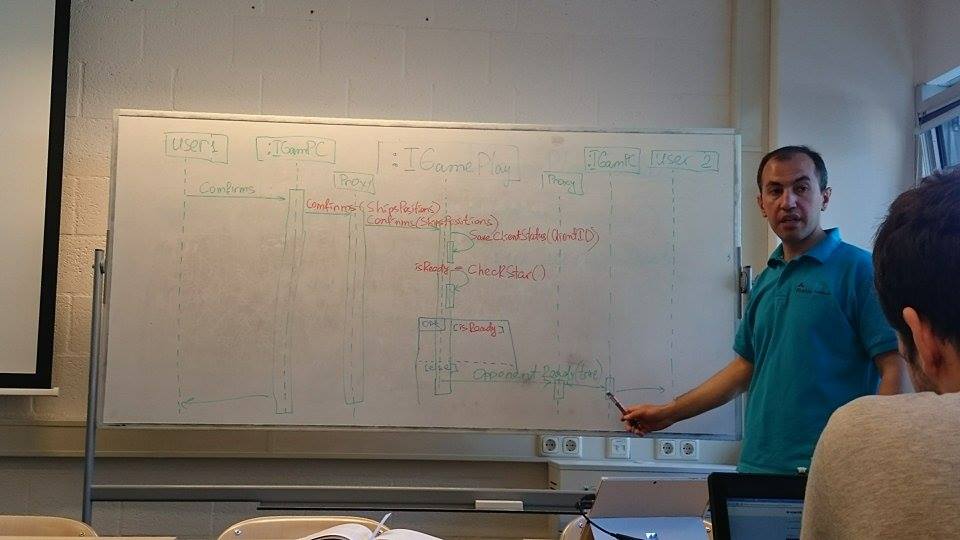 User1
:IGamPC
:IGamePlay
:IGamPC
User 2
Proxy
Proxy
Confirms
Confirms(ShipsPositions)
Confirms(ShipsPositions)
SaveClientStatus(ClientID)
isReady = CheckStar()
[isReady]
[else]
Opponent Ready(